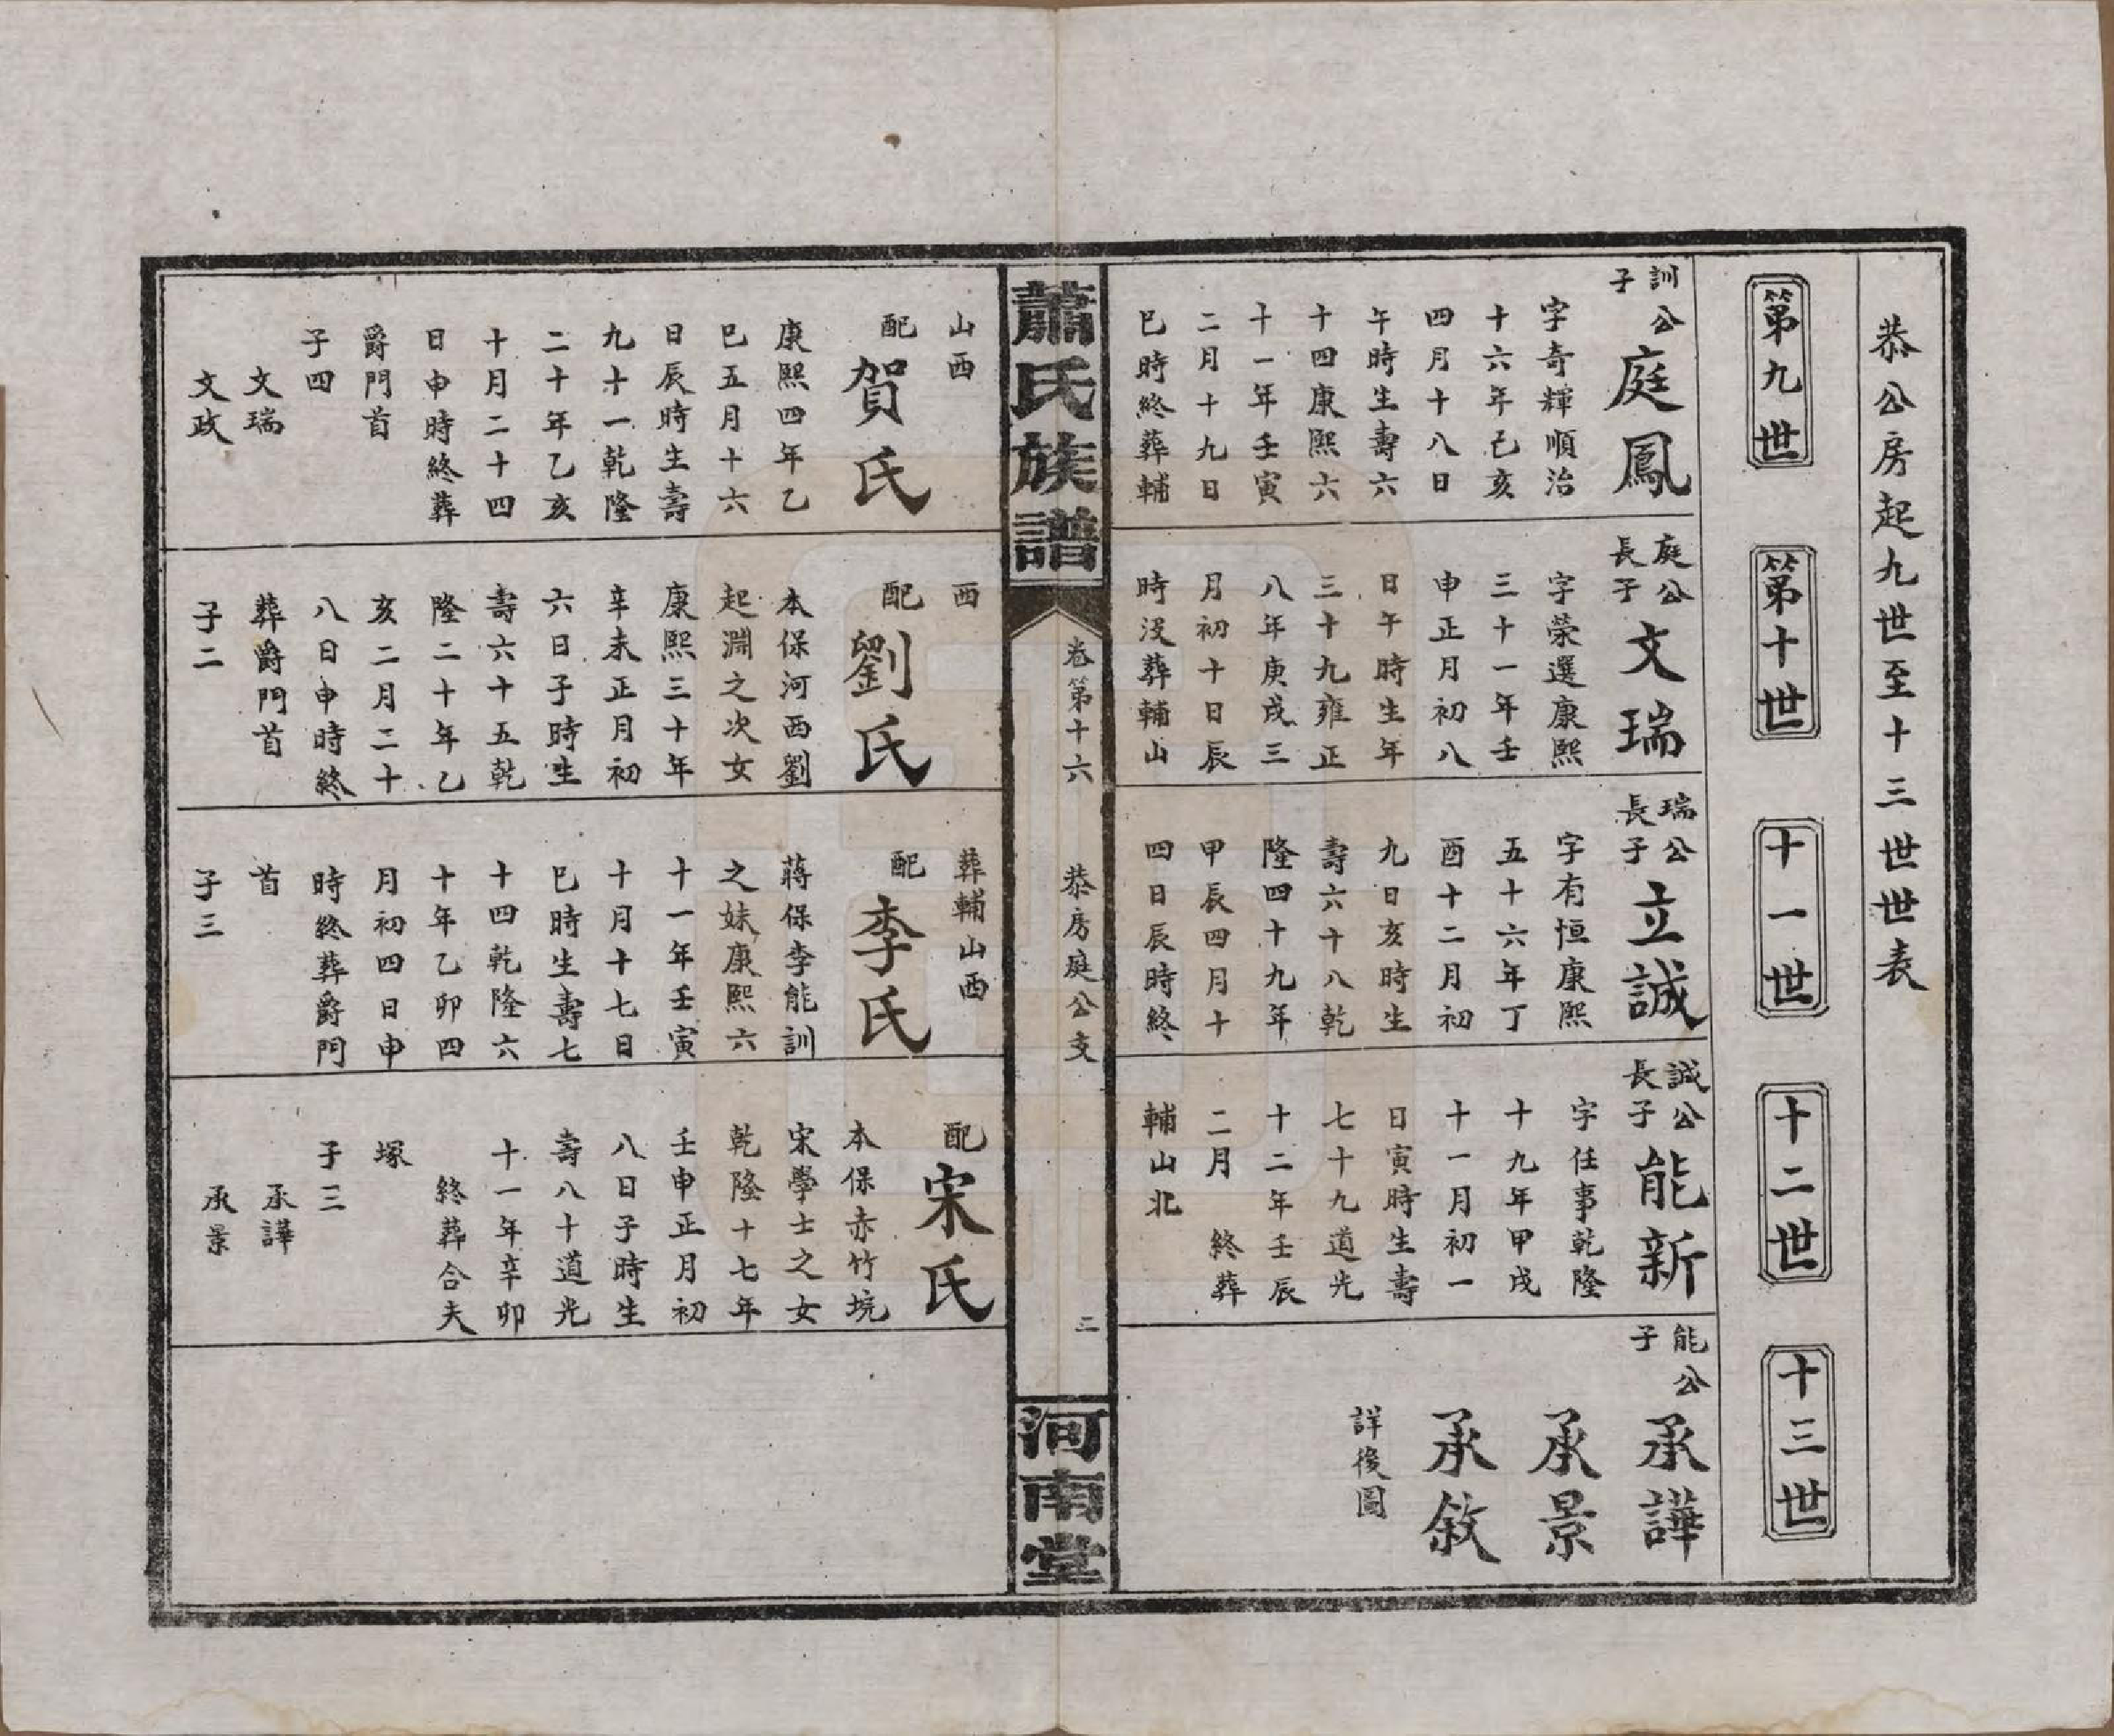 恭公房起九世至十三世世表
第九世
第十世
十一世
十二世
十三世
訓公
子
庭鳳
字奇輝順治
十六年己亥
四月十八日
午時生壽六
十四康熙六
十一年壬寅
二月十九日
巳時終葬輔
山西
配賀氏
康熙四年乙
巳五月十六
日辰時生壽
九十一乾隆
二十年乙亥
十月二十四
日申時終葬
爵門首
子四
文瑞
文政
庭公
長子
文瑞
字榮選康熙
三十一年壬
申正月初八
日午時生年
三十九雍正
八年庚戌三
月初十日辰
時没葬輔山
西
配劉氏
本保河西劉
起淵之次女
康熙三十年
辛未正月初
六日子時生
壽六十五乾
隆二十年乙
亥二月二十
八日申時終
葬爵門首
子二
瑞公
長子
立誠
字有恒康熙
五十六年丁
酉十二月初
九日亥時生
壽六十八乾
隆四十九年
甲辰四月十
四日辰時終
葬輔山西
配李氏
蔣保李能訓
之妹康熙六
十一年壬寅
十月十七日
巳時生壽七
十四乾隆六
十年乙卯四
月初四日申
時終葬爵門
首
子三
誠公
長子
能新
字任事乾隆
十九年甲戌
十一月初一
日寅時生壽
七十九道光
十二年壬辰
二月 終葬
輔山北
配宋氏
本保赤竹境
宋學士之女
乾隆十七年
壬申正月初
八日子時生
壽八十道光
十一年辛卯
終葬合夫
塚
子三
承譁
承景
能公
子
承譁
承景
承敘
詳後圖
蕭氏族譜
卷第十六
恭房庭公支
二
河南堂